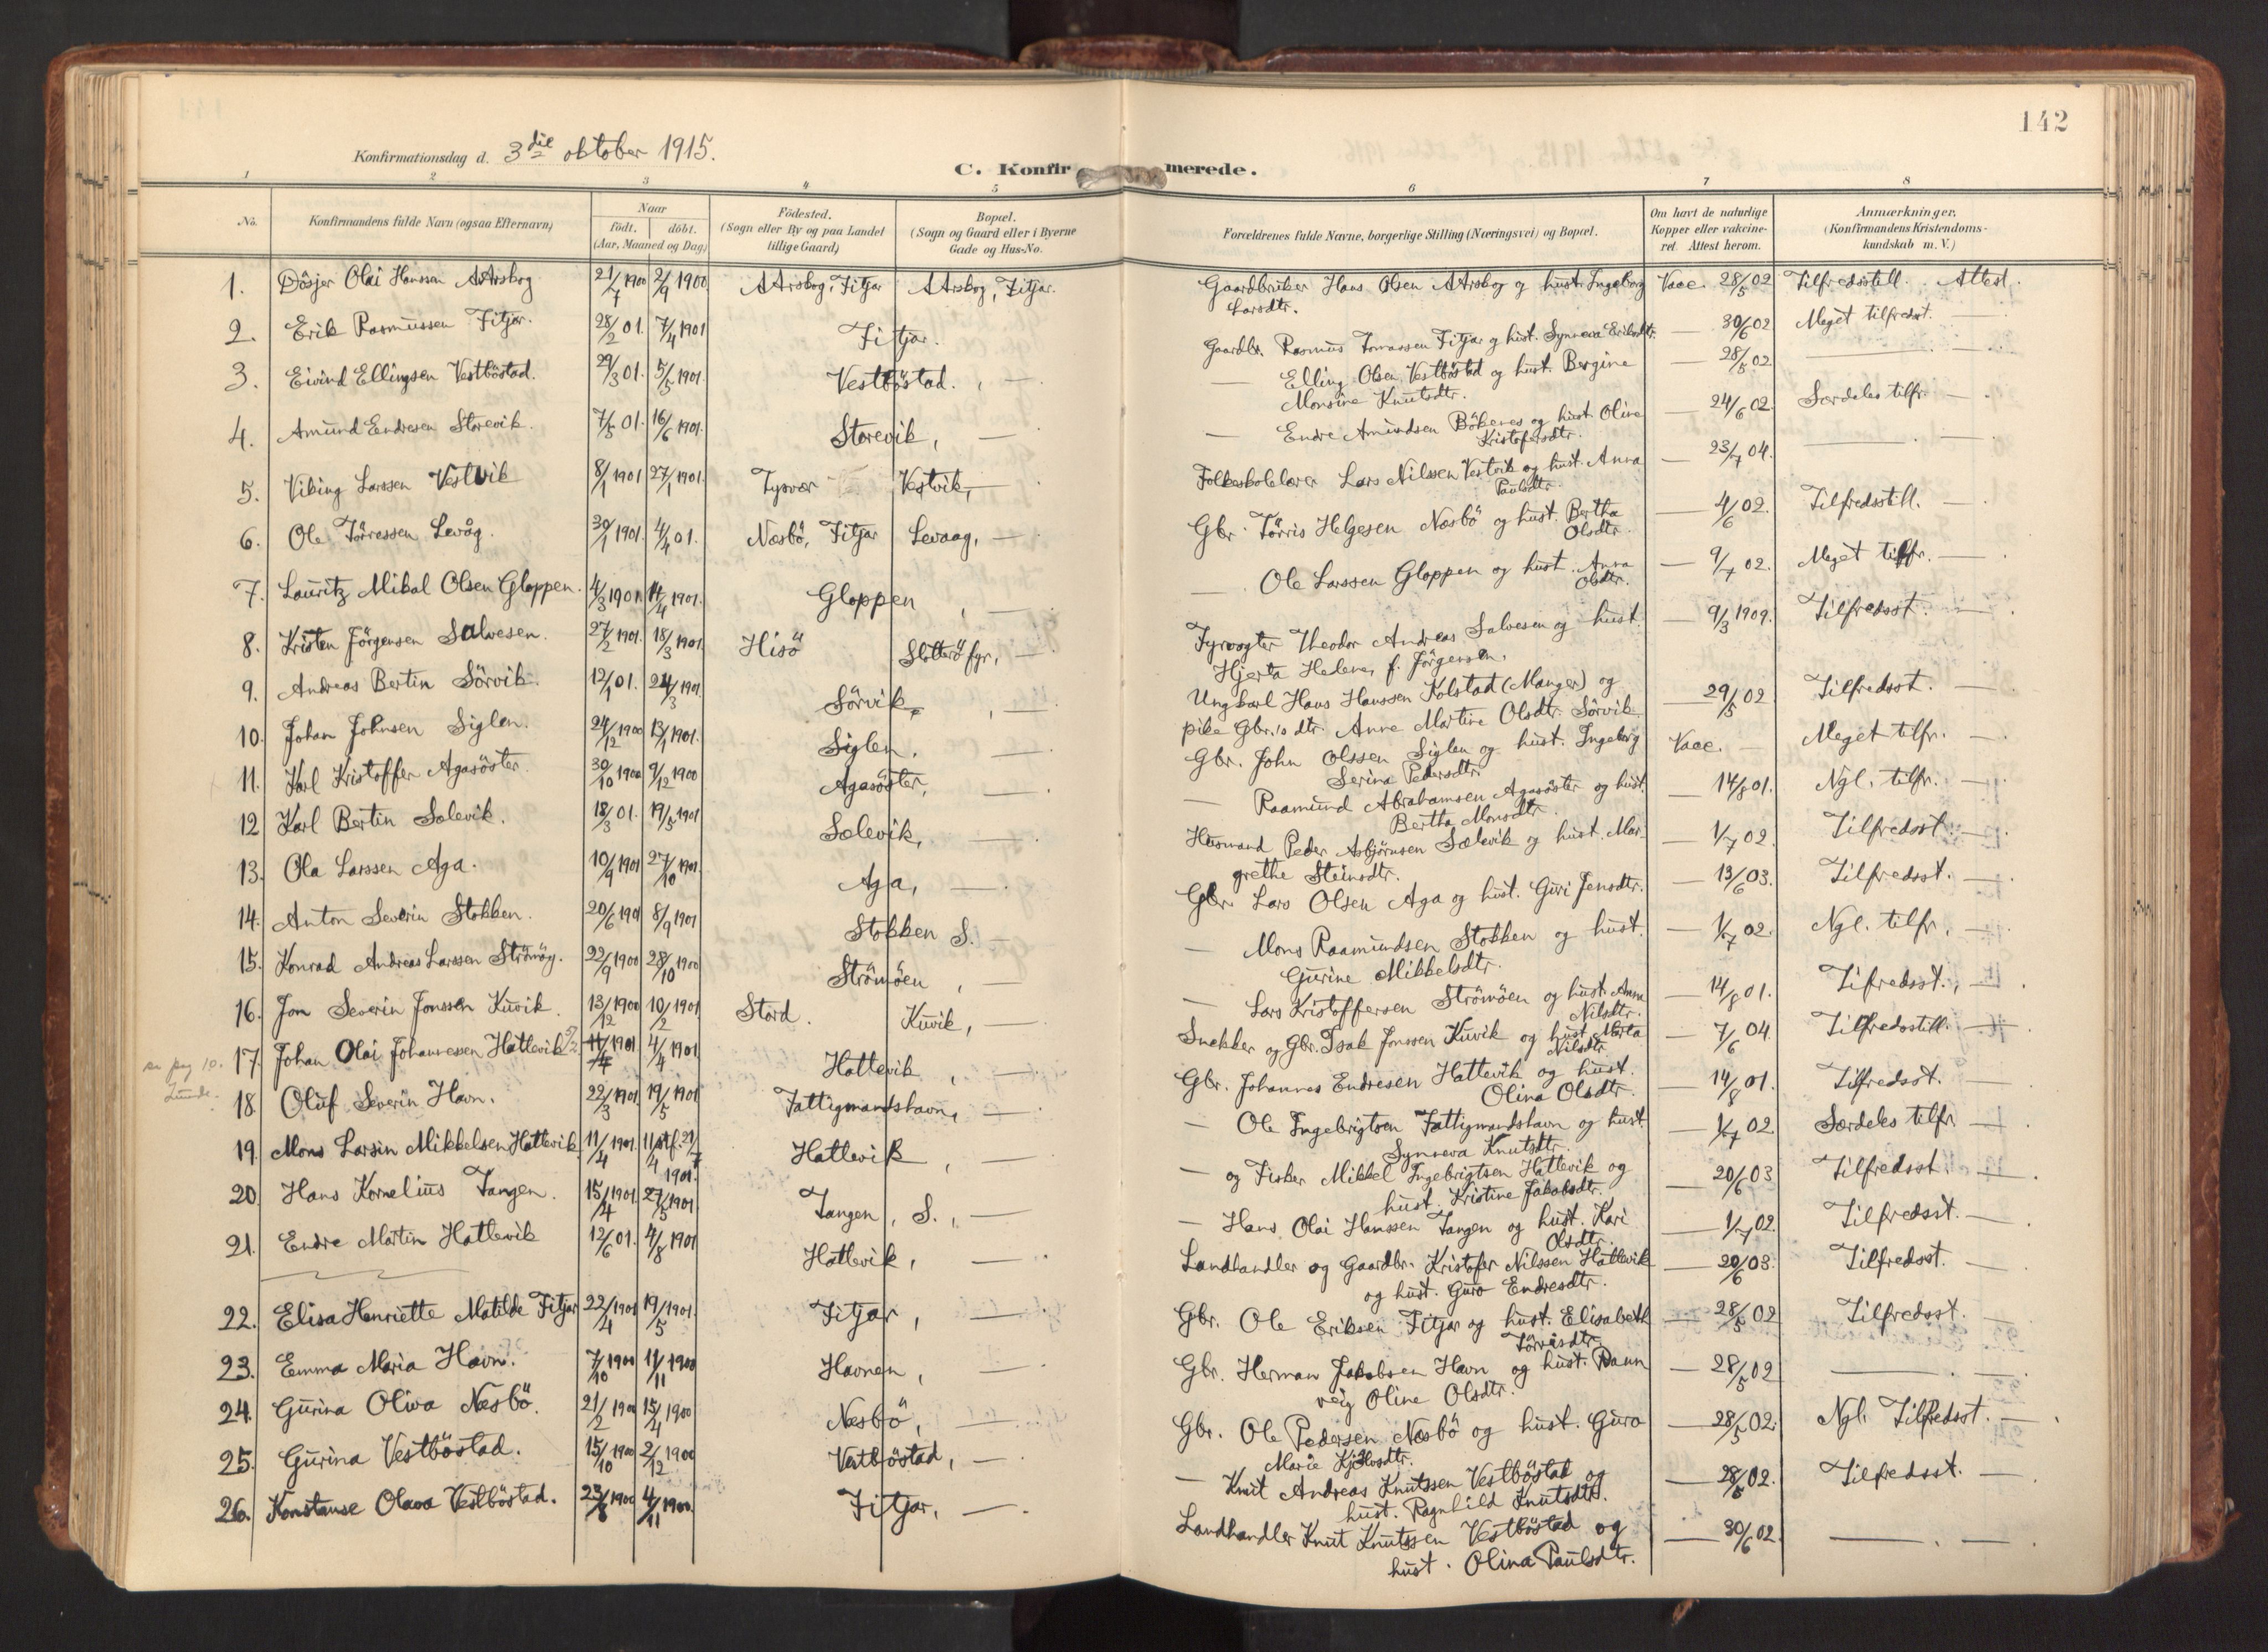 142
Konfirmationsdag d. 3die oktober 1915.
C. Konfirmerede.
1 2 3 4 5 6 7 8
No. Konfirmandens fulde Navn (ogsaa Efternavn) Naar født. døbt. (Aar, Maaned og Dag) Fødested. (Sogn eller By og paa Landet tillige Gaard) Bopæl. (Sogn og Gaard eller i Byerne Gade og Hus-No. Forældrenes fulde Navne, borgerlige Stilling (Næringsvei) og Bopæl. Om havt de naturlige Kopper eller vakcineret. Attest herom. Anmærkninger. (Konfirmandens Kristendomskundskab m. V.)
1. Dösjer Olai Hanssen AArskog 21/7 1900 2/9 1900 AArskog, Fitjar AArskog, Fitjar. Gaardbruker Hans Olsen AArskog og hust. Ingeborg Vacc. 28/5 02 Tilfredsstill. Attest.
Larsdtr.
2. Erik Rasmussen Fitjar. 28/2 01. 7/4 1901 Fitjar. Gaardbr. Rasmus Tomassen Fitjar og hust. Synneva Eriksdtr. — 30/6 02 Meget tilfredsst. —
3. Eivind Ellingsen Vestböstad. 29/3 01. 5/5 1901. Vestböstad. , — — Elling Olsen Vestböstad og hust. Bergine — 28/5 02 — . — .
Monsine Knutsdtr.
4. Amund Endresen Storevik. 7/5 01. 16/6 1901. Storevik, — — Endre Amundsen Bökenes og hust. Oline — 24/6 02. Særdeles tilfr. — .
Kristofersdtr.
5. Viking Larssen Vestvik 8/1 1901 27/1 1901. Tysvær Vestvik, — Folkeskolelærer Lars Nilssen Vestvik og hust. Anna — 23/7 04. — . —
Paulsdtr.
6. Ole Törressen Levåg. 30/1 1901. 4/4 01. Næsbö, Fitjar Levaag, — Gbr. Törris Helgesen Næsbö og hust. Bertha — 4/6 02. Tilfredsstill. —
Olsdtr.
7. Lauritz Mikal Olsen Gloppen. 4/3 1901 14/4 1901. Gloppen , — — Ole Larssen Gloppen og hust. Anna — 9/7 02. Meget tilfr. —
Olsdtr.
8. Kristen Jörgensen Salvesen. 27/2 1901. 18/3 1901. Hisö Slotterö fyr, — Fyrvogter Theodor Andreas Salvesen og hust. — 9/3 1909. Tilfredsst. —
Hjerta Helene, f. Jörgensen.
9. Andreas Bertin Sörvik. 12/1 01. 24/3 1901. Sörvik , — Ungkarl Hans Hanssen Kolstad (Manger) og — 29/5 02 Tilfredsst. —
pike Gbr.'s dtr. Anne Martine Olsdtr. Sörvik
10. Johan Johnsen Siglen. 24/12 1900 13/1 1901. Siglen. — Gbr. John Olssen Siglen og hust. Ingeborg Vacc. — Meget tilfr. —
Serina Pedersdtr.
11. Karl Kristoffer Agasöster. 30/10 1900 9/12 1900 Agasöster, — — Raamund Abrahamsen Agasöster og hust. — 14/8 01. Ngl. tilfr. —
Bertha Monsdtr.
12 Karl Bertin Sælevik. 18/3 01. 19/5 1901 Sælevik, — Husmand Peder Asbjörnsen Sælevik og hust. Mar- — 1/7 02. Tilfredsst. —
grethe Steinsdtr.
13. Ola Larssen Aga. 10/9 1901 27/10 1901. Aga, — Gbr. Lars Olsen Aga og hust. Guri Jensdtr. — 13/6 03. Tilfredsst. —
14. Anton Severin Stokken. 20/6 1901 8/9 1901 Stokken S. — — Mons Raamundsen Stokken og hust. — 1/7 02. Ngl. tilfr. —
Gurine Mikkelsdtr.
15. Konrad Andreas Larssen Strömöy. 22/9 1900 28/10 1900 Strömöen , — — Lars Kristoffersen Strömöen og hust. Anna — 14/8 01. Tifredsst. , —
Nilsdtr.
16. Jon Severin Jonssen Kuvik. 13/12 1900 10/2 1901 Stord. Kuvik, — Snekker og Gbr. Isak Jonssen Kuvik og hust. Marta — 7/6 04. Tilfredsstill. —
Nilsdtr.
Lunde.
17. Johan Olai Johannessen Hattevik 4/4 1901. Hattevik , — Gbr. Johannes Endresen Hattevik og hust. — 14/8 01. Tilfredsst. —
Olina Olsdtr.
18. Oluf Severin Havn. 22/3 1901. 19/5 1901 Fattigmandshavn, — — Ole Ingebrigtsen Fattigmandshavn og hust. — 1/7 02. Særdeles tilfr. —
Synneva Knutsdtr.
19. Mons Larsin Mikkelsen Hattevik 11/4 1901. 11/4 stf. 21/7 1901. Hattevik , — — og Fisker Mikkel Ingebrigtsen Hattevik og — 20/6 03 Tilfredsst. —
hust. Kristine Jakobsdtr.
20. Hans Kornelius Tangen. 15/4 1901. 27/5 1901. Tangen, S. , — — Hans Olai Hanssen Tangen og hust. Kari — 1/7 02. Tilfredsst. —
Olsdtr.
21. Endre Martin Hattevik 12/6 01. 4/8 1901 Hattevik, — Landhandler og Gaardbr. Kristofer Nilssen Hattevik — 20/6 03. Tilfredsst. —
og hust. Guro Endresdtr.
22. Elisa Henriette Matilde Fitjar 22/4 1901 19/5 1901. Fitjar, — Gbr. Ole Eriksen Fitjar og hust. Elisabeth — 28/5 02 Tilfredsst. —
Törrisdtr.
23. Emma Maria Havn. 7/10 1900 11/11 1900 Havnen, — Gbr. Herman Jakobsen Havn og hust. Raun — 28/5 02 — . —
veig Oline Olsdtr.
24. Gurina Oliva Næsbö. 21/2 1900 15/4 1900 Næsbö, — Gbr. Ole Pedersen Næsbö og hust. Guro — 28/5 02. Ngl. Tilfredsst. — .
Marie Kjölvsdtr.
25. Gurina Vestböstad. 15/10 1900 2/12 1900 Vestböstad, — — Knut Andreas Knutssen Vestböstad og — 28/5 02. Tilfredsst. —
hust. Ragnhild Knutsdtr.
26. Konstanse Olava Vestböstad. 4/11 1900. Fitjar, — Landhandler Knut Knutssen Vestböstad og — 30/6 02. — . — .
hust. Olina Paulsdtr.